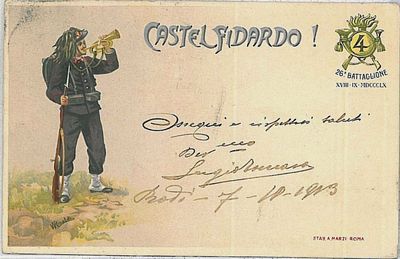 CASTELFIDARDO!
4
26º BATTAGLIONE
XVIII-IX-MDCCCLX
Ossequi e rispettosi saluti
Rodi - 7-10-1913
STAB. A. MARZI-ROMA